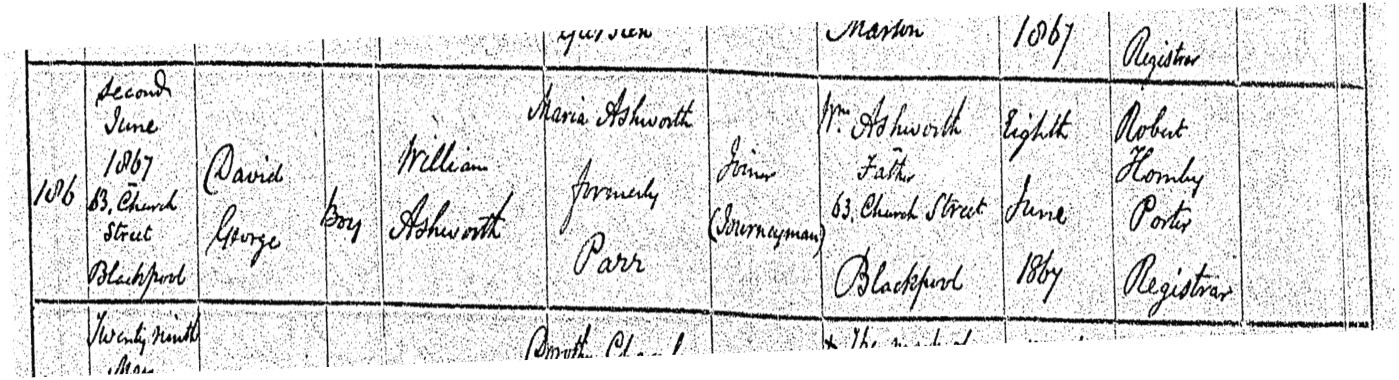 Marton
1867
Registrar
186
Second
June
1867
63, Church
Street
Blackpool
David
George
Boy
William
Ashworth
Maria Ashworth
formerly
Parr
Joiner
(Journeyman)
Wm Ashworth
Father
63, Church Street
Blackpool
Eighth
June
1867
Robert
Hornby
Porter
Registrar
Twenty ninth
May
Dorothy
The mark of